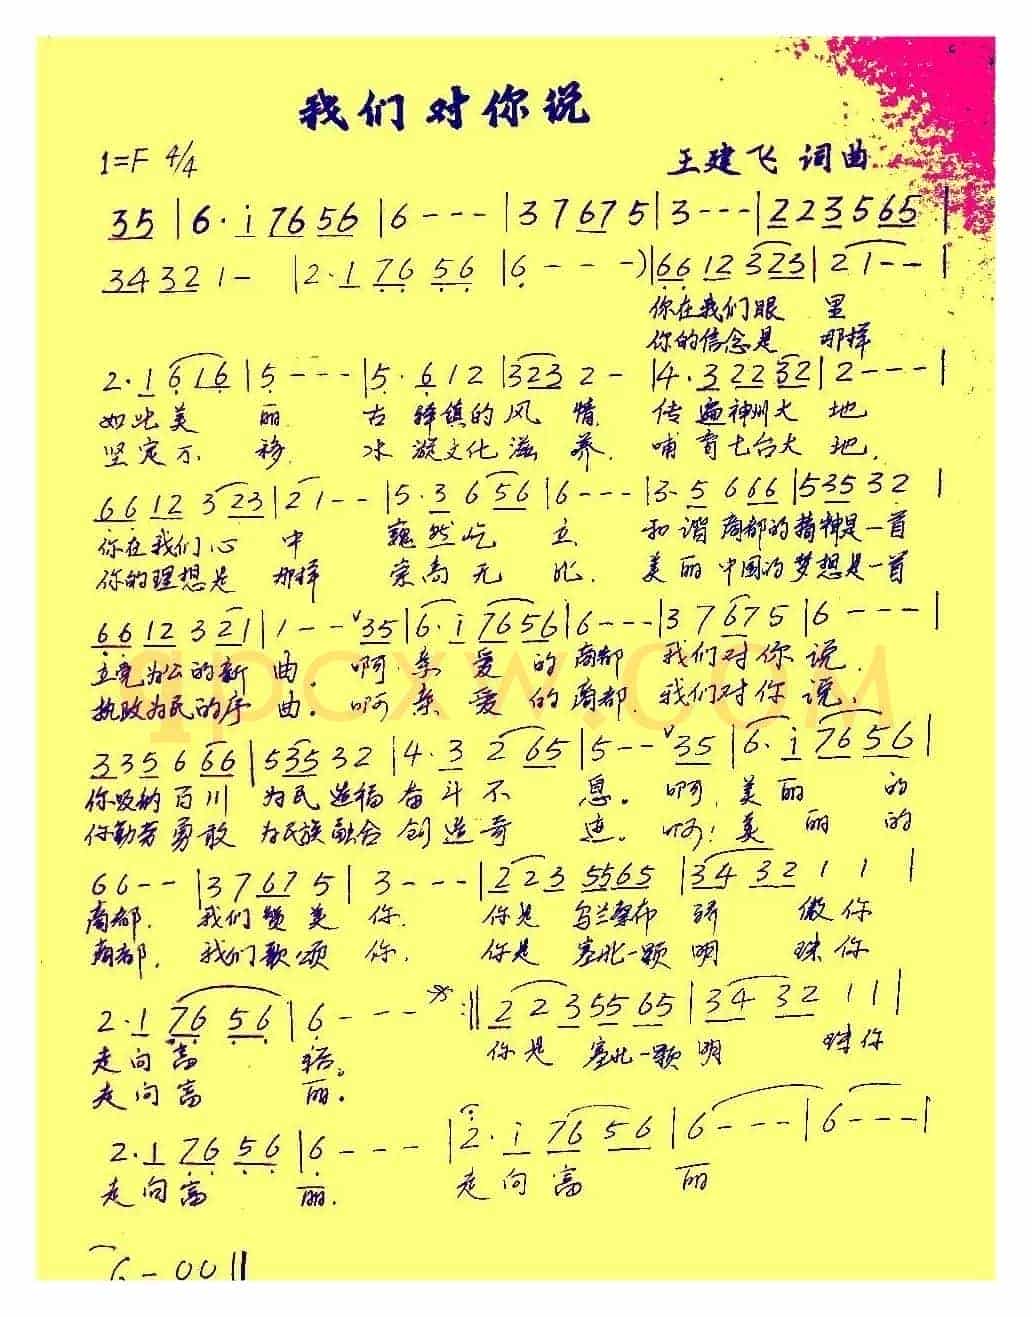 我们对你说
1=F 4/4 王建飞 词曲
35 | 6· i 7656 | 6 - - - | 3 7 67 5 | 3 - - - | 2 2 3 5 65 |
3432 1 - | 2· 1 76 56 | 6 - - - ) | 66 12 323 | 2 1 - - |
你在我们眼 里
你的信念是 那样
2· 1 6 16 | 5 - - - | 5· 6 1 2 | 323 2 - | 4· 3 22 32 | 2 - - - |
如此美 丽 古 驿镇的风 情 传遍神州大 地
坚定不 移 水 漩文化滋 养 哺育七台大 地
66 12 3 23 | 2 1 - - | 5· 3 6 56 | 6 - - - | 3· 5 6 66 | 535 3 2 |
你在我们心 中 巍然屹 立 和谐商都的精神是一首
你的理想是 那样 崇高无 比 美丽中国的梦想是一首
66 12 3 21 | 1 - - ∨35 | 6· i 7656 | 6 - - - | 3 7 67 5 | 6 - - - |
立党为公的新 曲。 啊,亲 爱 的 商都 我们对你 说,
执政为民的序 曲。 啊 亲 爱 的 商都, 我们对你 说,
335 6 66 | 535 3 2 | 4· 3 2 65 | 5 - - ∨35 | 6· i 76 56 |
你吸纳百川 为民造福 奋斗不 息。 啊,美丽 的
你勤劳勇敢 为民族融合 创造奇 迹。 啊!美 丽 的
6 6 - - | 3 7 67 5 | 3 - - - | 2 2 3 5565 | 34 32 1 1 |
商都, 我们赞美 你, 你是 乌兰察布 骄 傲你
商都, 我们歌颂 你, 你是 塞北一颗 明 珠你
2· 1 76 56 | 6 - - - :|| 2 2 3 55 65 | 34 32 1 1 |
走向富 裕。 你是 塞北一颗 明 珠你
走向富 丽。
2· 1 76 56 | 6 - - - | 2· i 76 56 | 6 - - - | 6 - - - |
走向富 丽. 走向富 丽
6 - 0 0 ||